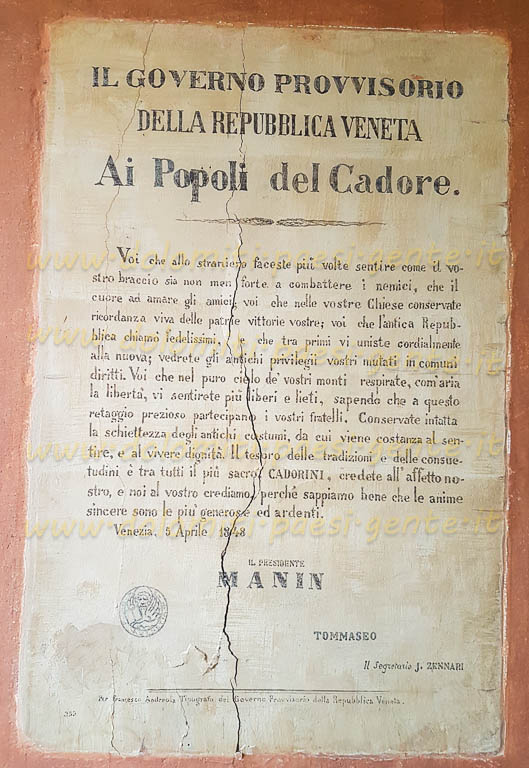 IL GOVERNO PROVVISORIO
DELLA REPUBBLICA VENETA
Ai Popoli del Cadore.
Voi che allo straniero faceste più volte sentire come il vo-
stro braccio sia non men forte a combattere i nemici, che il
cuore ad amare gli amici; voi che nelle vostre Chiese conservate
ricordanza viva delle patrie vittorie vostre; voi che l'antica Repub-
blica chiamò fedelissimi, e che tra primi vi uniste cordialmente
alla nuova; vedrete gli antichi privilegii vostri mutati in comuni
diritti. Voi che nel puro cielo de' vostri monti respirate, com'aria
la libertà, vi sentirete più liberi e lieti, sapendo che a questo
retaggio prezioso partecipano i vostri fratelli. Conservate intatta
la schiettezza degli antichi costumi, da cui viene costanza al sen-
tire, e al vivere dignità. Il tesoro delle tradizioni e delle consue-
tudini è tra tutti il più sacro. CADORINI, credete all'affetto no-
stro, e noi al vostro crediamo, perchè sappiamo bene che le anime
sincere sono le più generose ed ardenti.
Venezia, 5 Aprile 1848
IL PRESIDENTE
MANIN
TOMMASEO
Il Segretario J. ZENNARI
Per Francesco Andreola Tipografo del Governo Provvisorio della Repubblica Veneta.
www.dolomiti-paesi-gente.it
www.dolomiti-paesi-gente.it
www.dolomiti-paesi-gente.it
www.dolomiti-paesi-gente.it